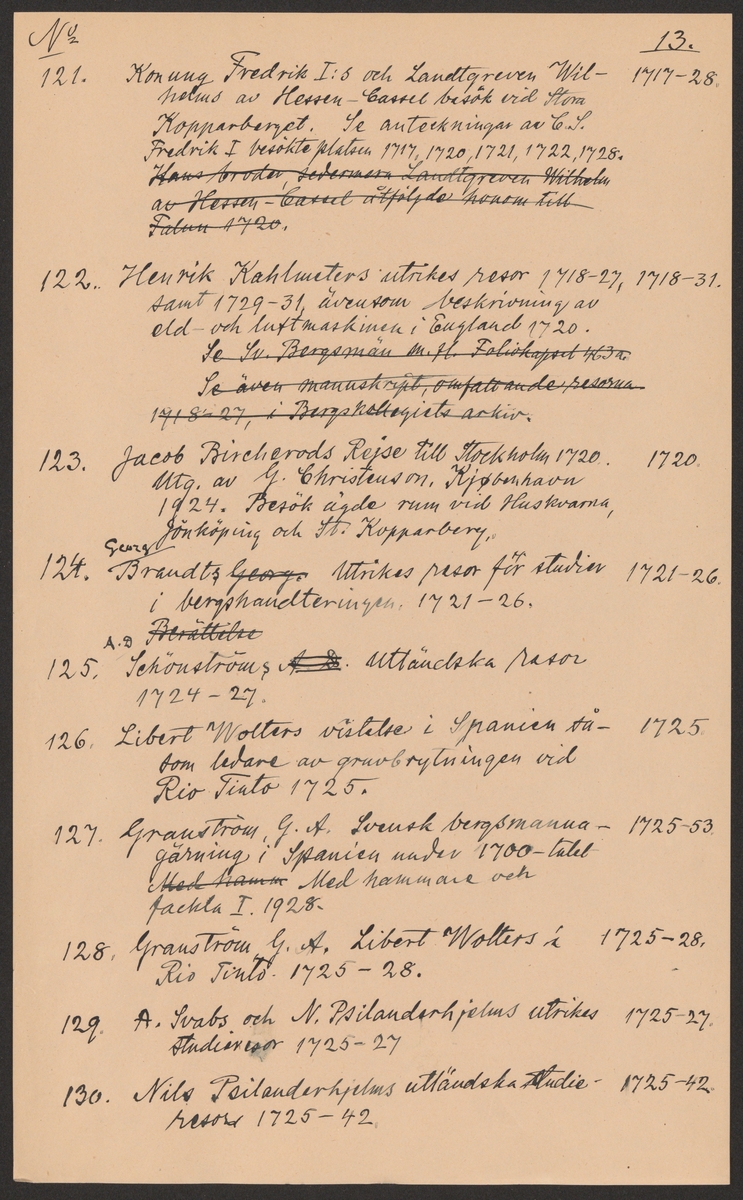 No 13.
121. Konung Fredrik I:s och Landtgreven Wil- 1717-28.
helms av Hessen-Cassel besök vid Stora
Kopparberget. Se anteckningar av C.S.
Fredrik I besökte platsen 1717, 1720, 1721, 1722, 1728.
Hans broder, sedermera Landtgreven Wilhelm
av Hessen-Cassel åtföljde honom till
Falun 1720.
122. Henrik Kahlmeters utrikes resor 1718-27, 1718-31.
samt 1729-31, ävensom beskrivning av
eld- och luftmaskinen i England 1720.
Se Sv. Bergsmän m.fl. Foliokapsel
Se även manuskript, omfattande resorna
1718-27, i Bergskollegiets arkiv.
123. Jacob Bircherods Rejse till Stockholm 1720. 1720.
Utg. av G. Christensen, Kjøbenhavn
1924. Besök ägde rum vid Huskvarna,
Jönköping och St. Kopparberg.
Georg
124. Brandts Georg. Utrikes resor för studier 1721-26.
i bergshandteringen. 1721-26.
Berättelse
A.D
125. Schönströms A. D. Utländska resor
1724-27.
126. Libert Wolters vistelse i Spanien så- 1725.
som ledare av gruvbrytningen vid
Rio Tinto 1725.
127. Granström, G. A. Svensk bergsmanna- 1725-53.
gärning i Spanien under 1700-talet
Med hamm Med hammare och
fackla I. 1928.
128. Granström, G. A. Libert Wolters i 1725-28.
Rio Tinto. 1725-28.
129. A. Svabs och N. Psilanderhjelms utrikes 1725-27.
studieresor 1725-27
130. Nils Psilanderhjelms utländska studie- 1725-42.
resor 1725-42.